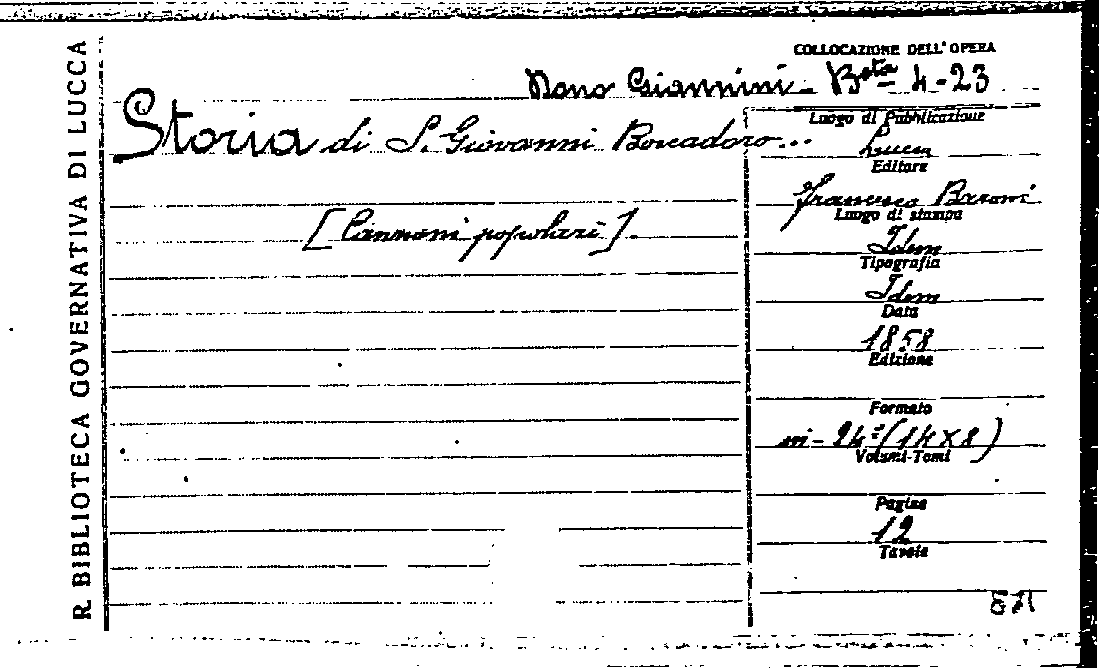 R. BIBLIOTECA GOVERNATIVA DI LUCCA
COLLOCAZIONE DELL'OPERA
Dono Giannini - B.sta 4-23
Storia di S. Giovanni Boccadoro...
[Canzoni popolari].
Luogo di Pubblicazione
Lucca
Editore
Francesco Baroni
Luogo di stampa
Idem
Tipografia
Idem
Data
1858
Edizione
Formato
in-24º (14x8)
Volumi-Tomi
Pagine
12
Tavole